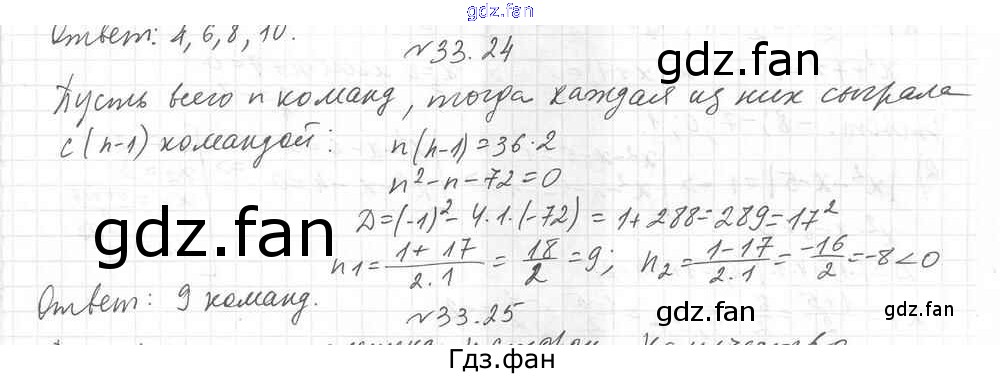 gdz.fan
Ответ: 4, 6, 8, 10.
№33.24
gdz.fan
Пусть всего n команд, тогда каждая из них сыграла
с (n-1) командой: n(n-1)=36·2
n²-n-72=0
gdz.fan
D=(-1)²-4·1·(-72)=1+288=289=17²
n₁=(1+17)/(2·1)=18/2=9; n₂=(1-17)/(2·1)=-16/2=-8<0
Ответ: 9 команд.
№33.25
gdz.fan
gdz.fan
Гдз.фан